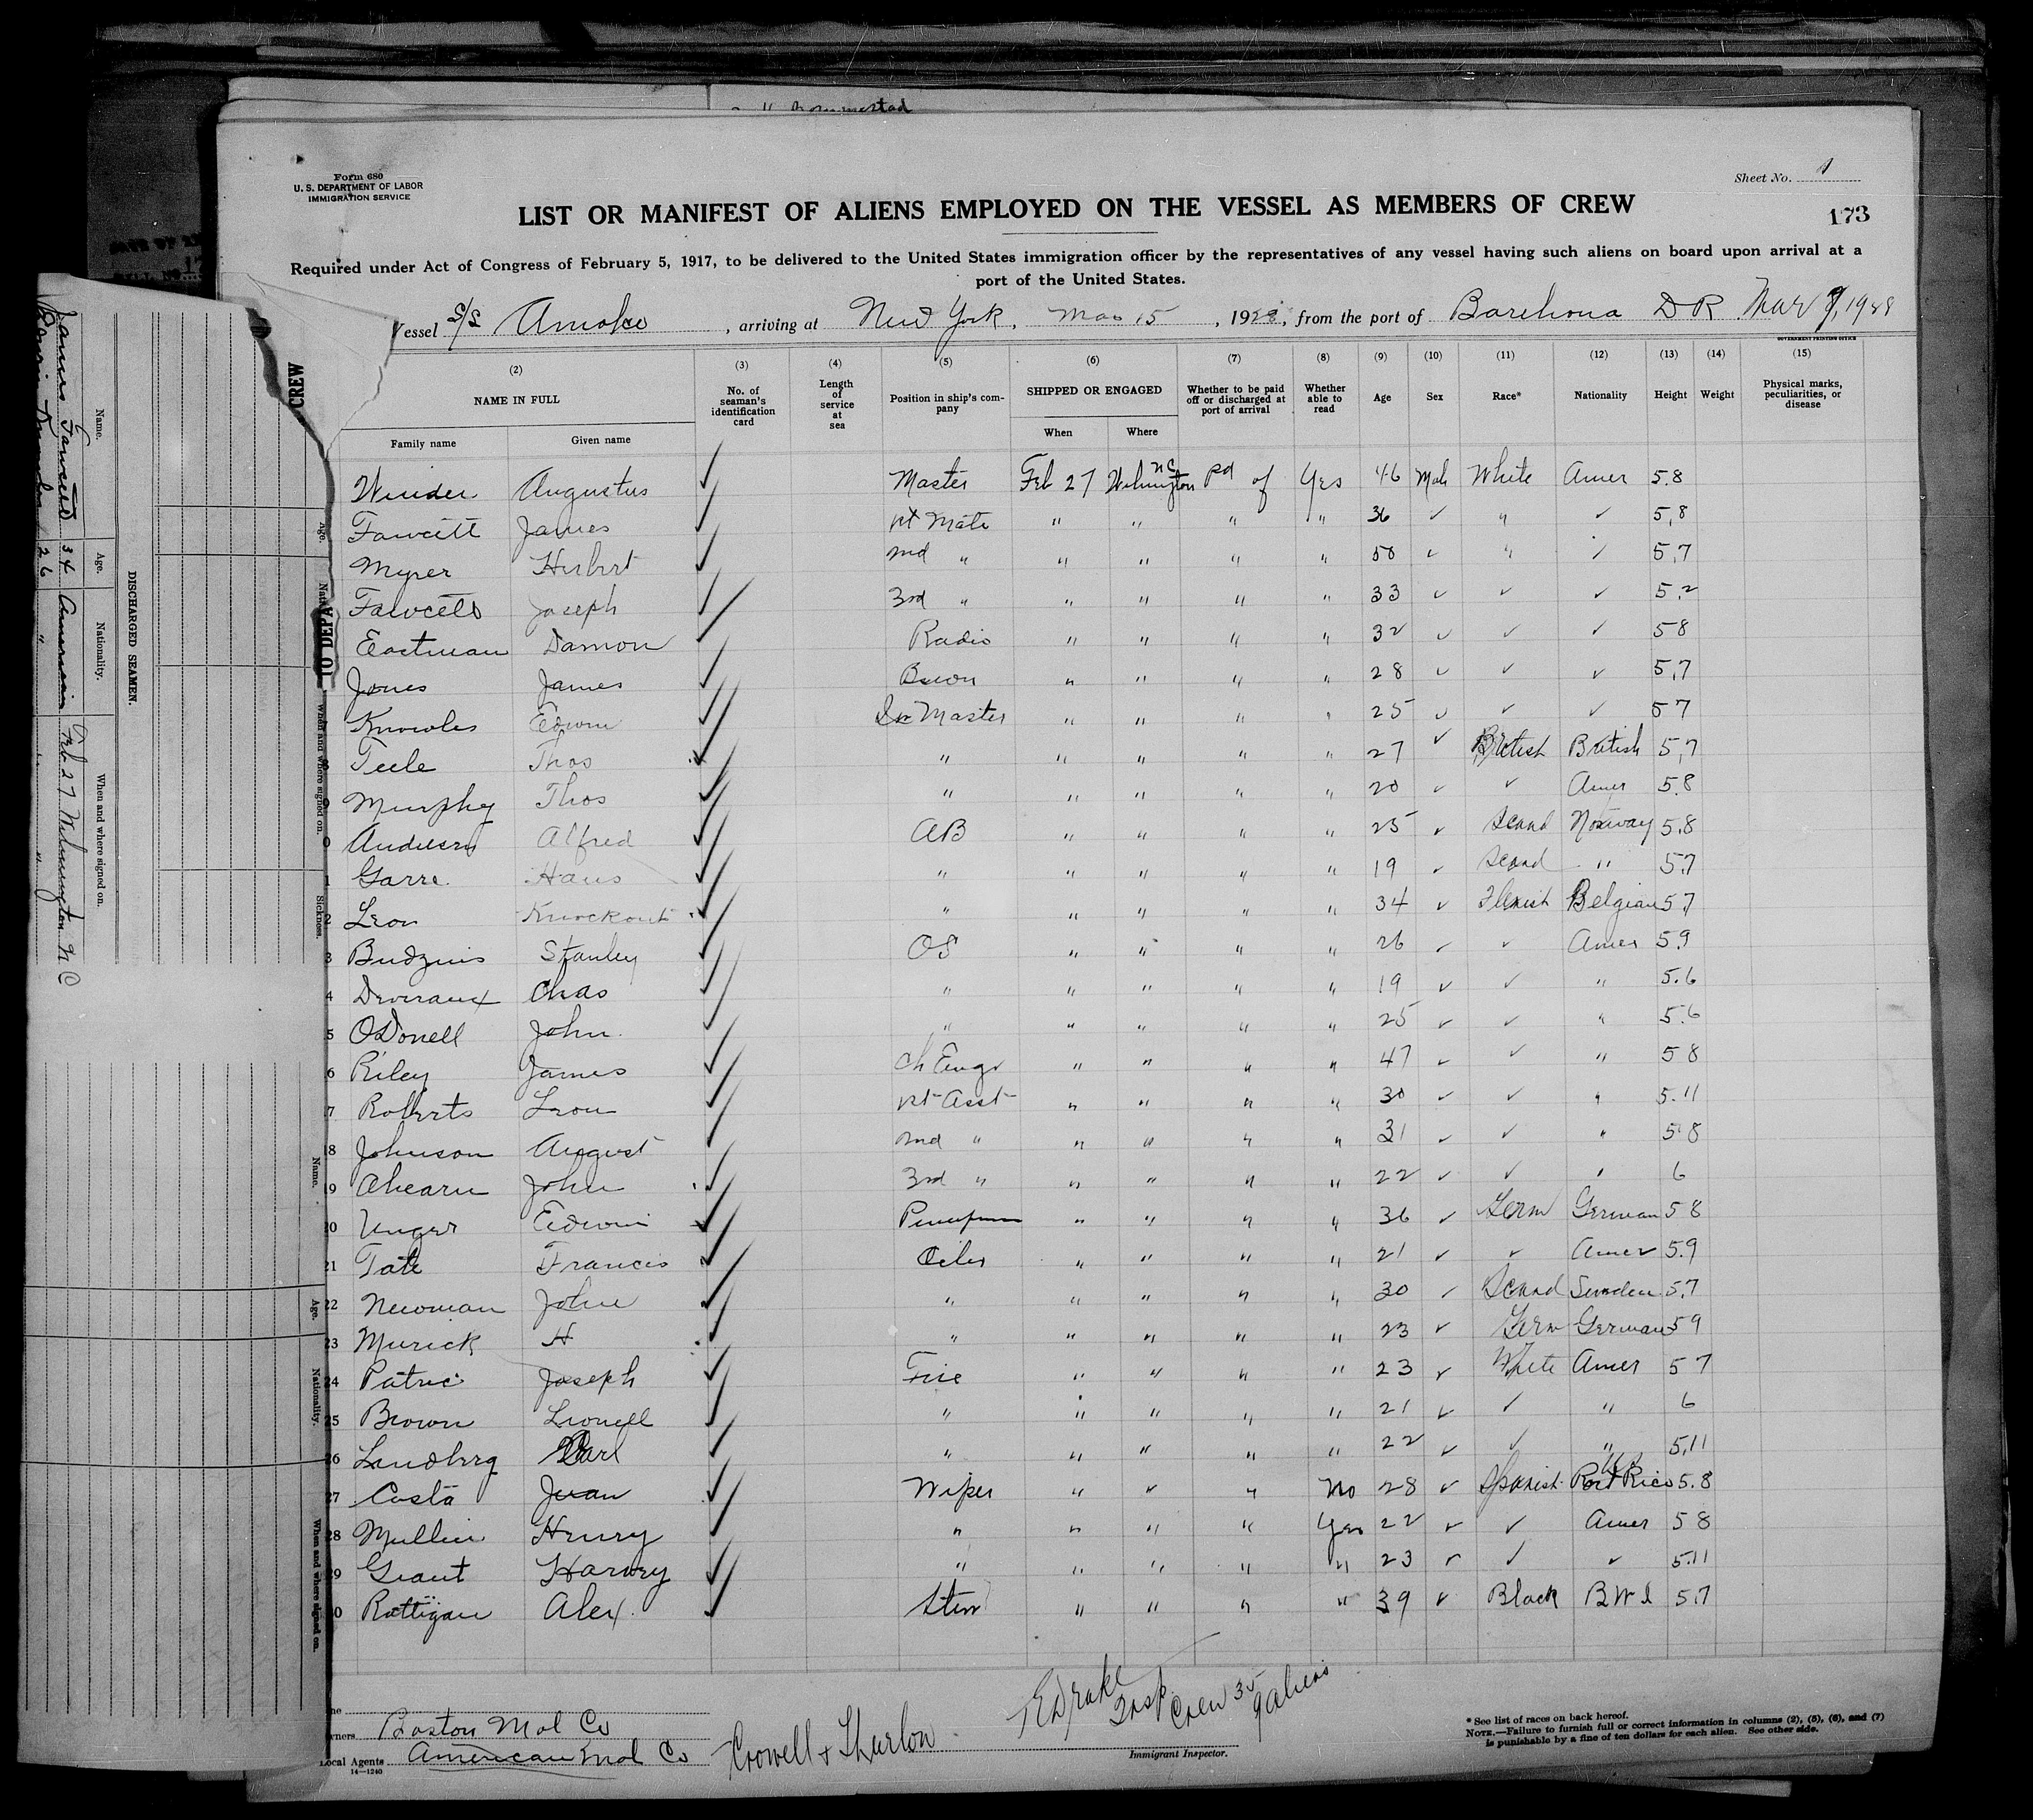 Form 680
U. S. DEPARTMENT OF LABOR
IMMIGRATION SERVICE
Sheet No. 1
LIST OR MANIFEST OF ALIENS EMPLOYED ON THE VESSEL AS MEMBERS OF CREW
173
Required under Act of Congress of February 5, 1917, to be delivered to the United States immigration officer by the representatives of any vessel having such aliens on board upon arrival at a
port of the United States.
Vessel S/S , arriving at New York, Mar 15, 1928, from the port of Barehona D R Mar 9, 1928
GOVERNMENT PRINTING OFFICE
(2) (3) (4) (5) (6) (7) (8) (9) (10) (11) (12) (13) (14) (15)
NAME IN FULL No. of seaman's identification card Length of service at sea Position in ship's company SHIPPED OR ENGAGED Whether to be paid off or discharged at port of arrival Whether able to read Age Sex Race* Nationality Height Weight Physical marks, peculiarities, or disease
Family name Given name When Where
Winder Augustus ✓ Master Feb 27 Wilmington NC pd of Yes 46 Male White Amer 5.8
Fawcett James ✓ 1st Mate " " " " 36 ✓ " ✓ 5,8
Myrer Herbert ✓ 2nd " " " " " 50 ✓ " ✓ 5,7
Fawcett Joseph ✓ 3rd " " " " " 33 ✓ ✓ ✓ 5,2
Eastman Damon ✓ Radio " " " " 32 ✓ ✓ ✓ 58
Jones James ✓ " " " " 28 ✓ ✓ ✓ 5,7
Knowles Edwin ✓ Master " " " " 25 ✓ ✓ ✓ 57
8 Teele Thos ✓ " " " " " 27 ✓ British British 5,7
9 Murphy Thos ✓ " " " " " 20 ✓ ✓ Amer 5.8
0 Andersen Alfred ✓ AB " " " " 25 ✓ Scand Norway 5.8
1 Garre Hans ✓ " " " " " 19 ✓ Scand " 5.7
2 Leon Knockout ✓ " " " " " 34 ✓ Flemish Belgian 5,7
3 Budzuis Stanley ✓ OS " " " " 26 ✓ ✓ Amer 5.9
4 Deveraux Chas ✓ " " " " " 19 ✓ ✓ " 5.6
5 ODonell John ✓ " " " " " 25 ✓ ✓ " 5.6
6 Riley James ✓ Ch Engr " " " " 47 ✓ ✓ " 58
7 Roberts Leon ✓ 1st Asst " " " " 30 ✓ ✓ " 5.11
18 Johnson August ✓ 2nd " " " " " 31 ✓ ✓ " 5.8
19 Ahearn John ✓ 3rd " " " " " 22 ✓ ✓ " 6
20 Unger Edwin ✓ " " " " 36 ✓ Germ German 58
21 Tate Francis ✓ Oiler " " " " 21 ✓ ✓ Amer 5.9
22 Newman John ✓ " " " " " 30 ✓ Scand Sweden 5.7
23 Murick H ✓ " " " " " 23 ✓ Germ German 59
24 Patric Joseph ✓ Fire " " " " 23 ✓ White Amer 57
25 Brown Lionell ✓ " " " " " 21 ✓ ✓ " 6
26 Lundberg Carl ✓ " " " " " 22 ✓ ✓ " 5,11
27 Costa Juan ✓ Wiper " ✓ " No 28 ✓ Spanish Port Rico 5.8
28 Mullin Henry ✓ " " " " Yes 22 ✓ ✓ Amer 58
29 Grant Harvey ✓ " " " " " 23 ✓ ✓ ✓ 5.11
0 Rattigan Alex. ✓ Stew " " " " 39 ✓ Black B W I 5,7
Owners Boston Mol Co
Local Agents American Mol Co
14—1240
Crowell & Thurlow
Insp Crew 35 9 aliens
Immigrant Inspector.
* See list of races on back hereof.
NOTE.—Failure to furnish full or correct information in columns (2), (5), (6), and (7)
is punishable by a fine of ten dollars for each alien. See other side.
DISCHARGED SEAMEN.
Name. Age. Nationality. When and where signed on.
James Fawcett 34 American Feb 27 Wilmington N C
26 " " "
CREW
TO DEPA
Age.
When and where signed on.
Sickness.
Name.
Age.
Nationality.
When and where signed on.